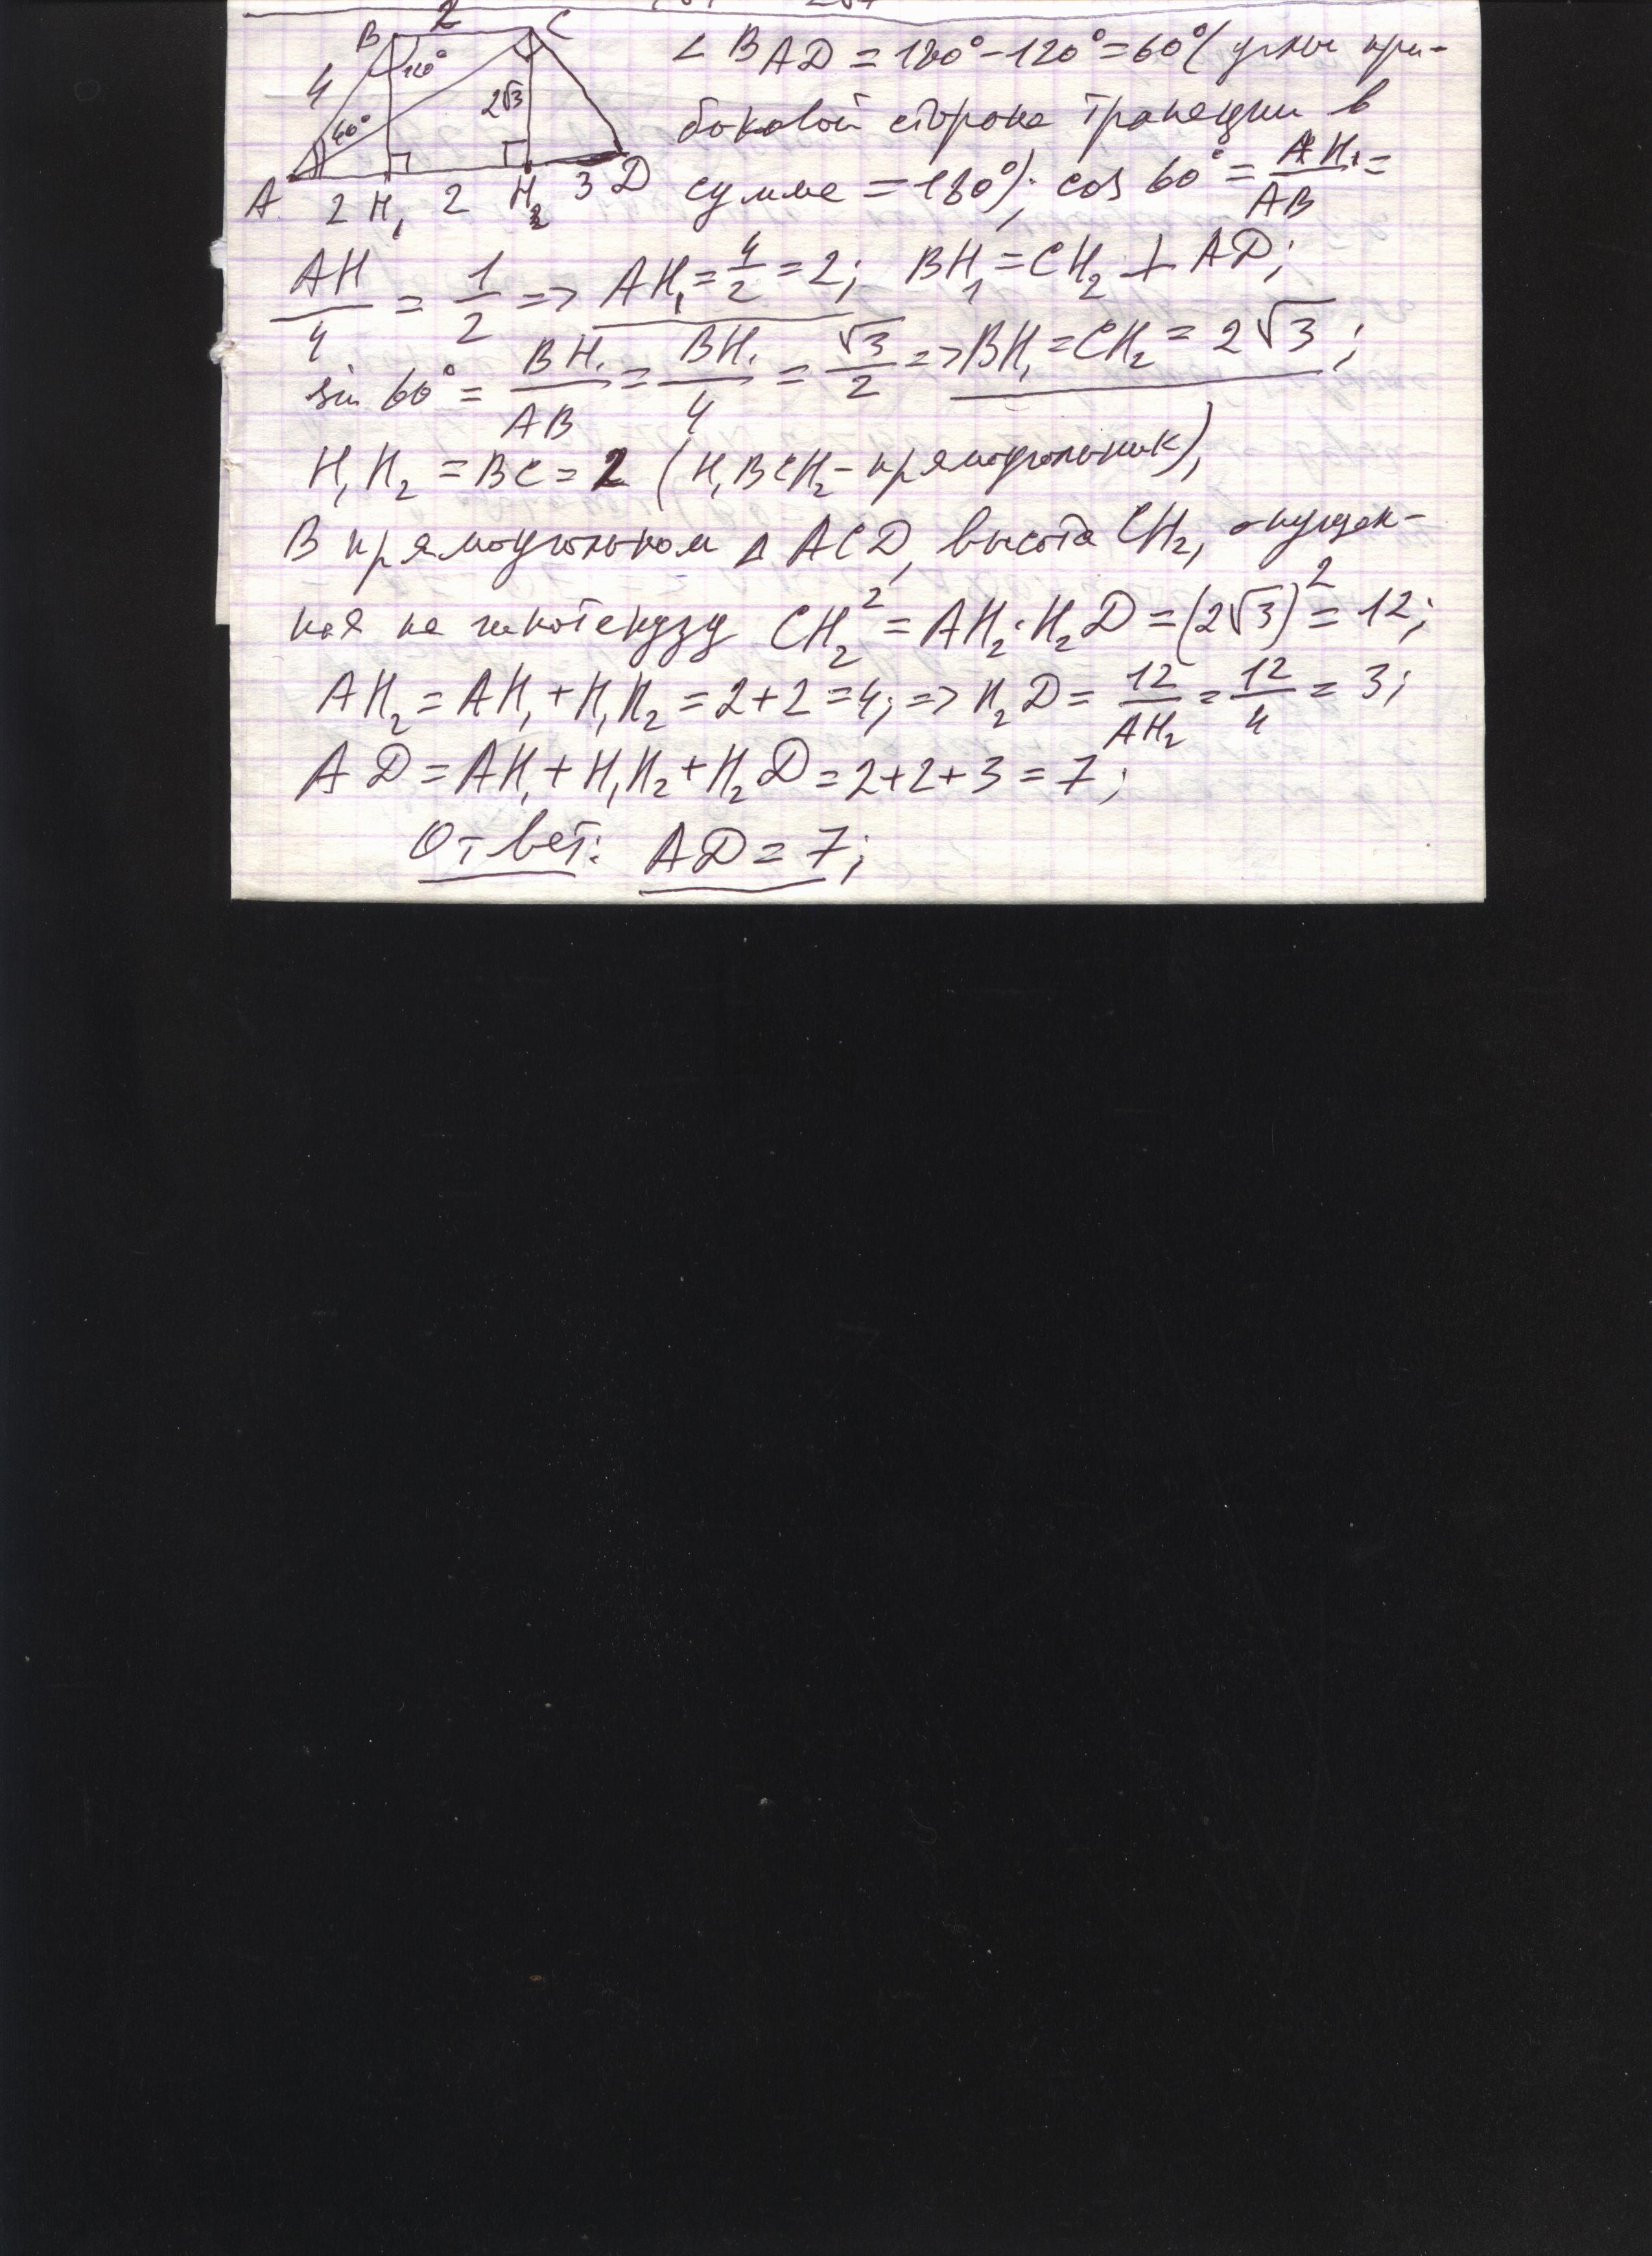 2
B C
4 120° 2√3
60°
A 2 H₁ 2 H₂ 3 D
∠ BAD = 180° - 120° = 60° (углы при-
боковой стороне трапеции в
сумме = 180°); cos 60° = AH₁/AB =
AH/4 = 1/2 => AH₁ = 4/2 = 2; BH₁ = CH₂ ⊥ AD;
sin 60° = BH₁/AB = BH₁/4 = √3/2 => BH₁ = CH₂ = 2√3;
H₁H₂ = BC = 2 (H₁BCH₂ - прямоугольник),
В прямоугольном Δ ACD, высота CH₂, опущен-
ная на гипотенузу CH₂² = AH₂·H₂D = (2√3)² = 12;
AH₂ = AH₁ + H₁H₂ = 2+2 = 4; => H₂D = 12/AH₂ = 12/4 = 3;
AD = AH₁ + H₁H₂ + H₂D = 2+2+3 = 7;
Ответ: AD = 7;